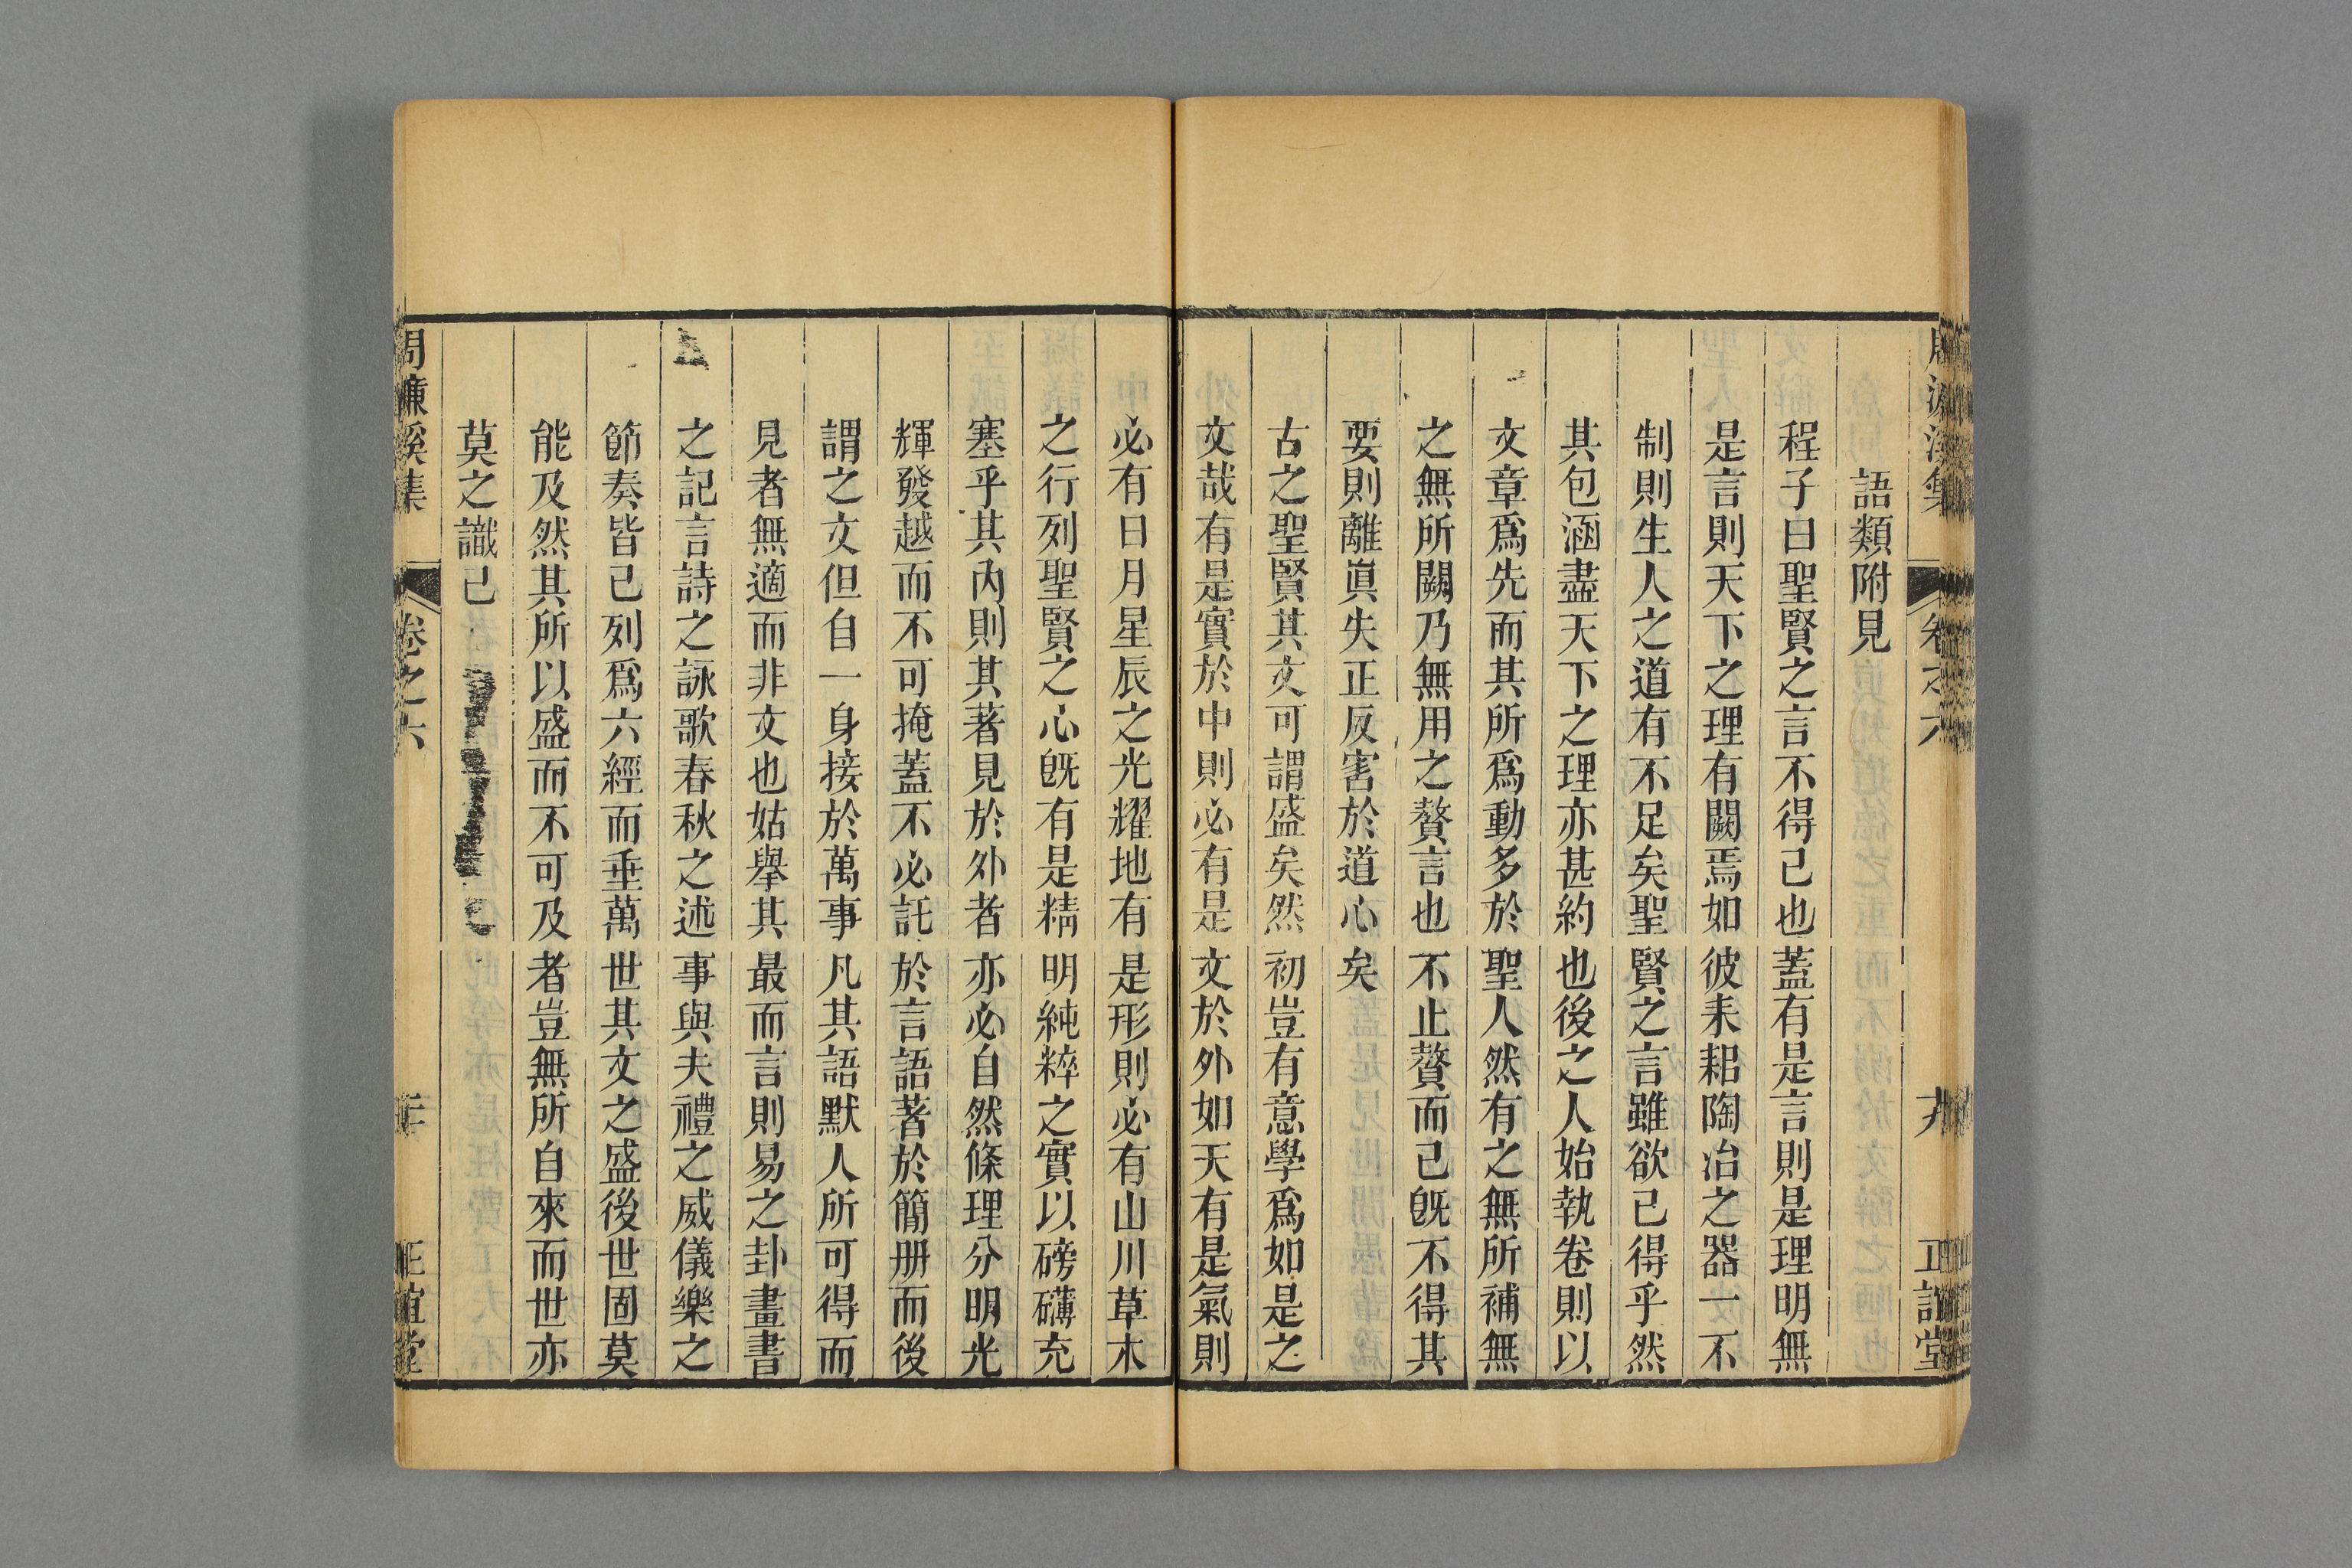 語類附見
程子曰聖賢之言不得已也蓋有是言則是理明無
是言則天下之理有闕焉如彼耒耜陶冶之器一不
制則生人之道有不足矣聖賢之言雖欲已得乎然
其包涵盡天下之理亦甚約也後之人始執卷則以
文章爲先而其所爲動多於聖人然有之無所補無
之無所闕乃無用之贅言也不止贅而已旣不得其
要則離眞失正反害於道心矣
古之聖賢其文可謂盛矣然初豈有意學爲如是之
文哉有是實於中則必有是文於外如天有是氣則
必有日月星辰之光耀地有是形則必有山川草木
之行列聖賢之心旣有是精明純粹之實以磅礴充
塞乎其內則其著見於外者亦必自然條理分明光
輝發越而不可掩蓋不必託於言語著於簡册而後
謂之文但自一身接於萬事凡其語默人所可得而
見者無適而非文也姑舉其最而言則易之卦畫書
之記言詩之詠歌春秋之述事與夫禮之威儀樂之
節奏皆已列爲六經而垂萬世其文之盛後世固莫
能及然其所以盛而不可及者豈無所自來而世亦
莫之識已
周濂溪集 卷之六 二十 正誼堂